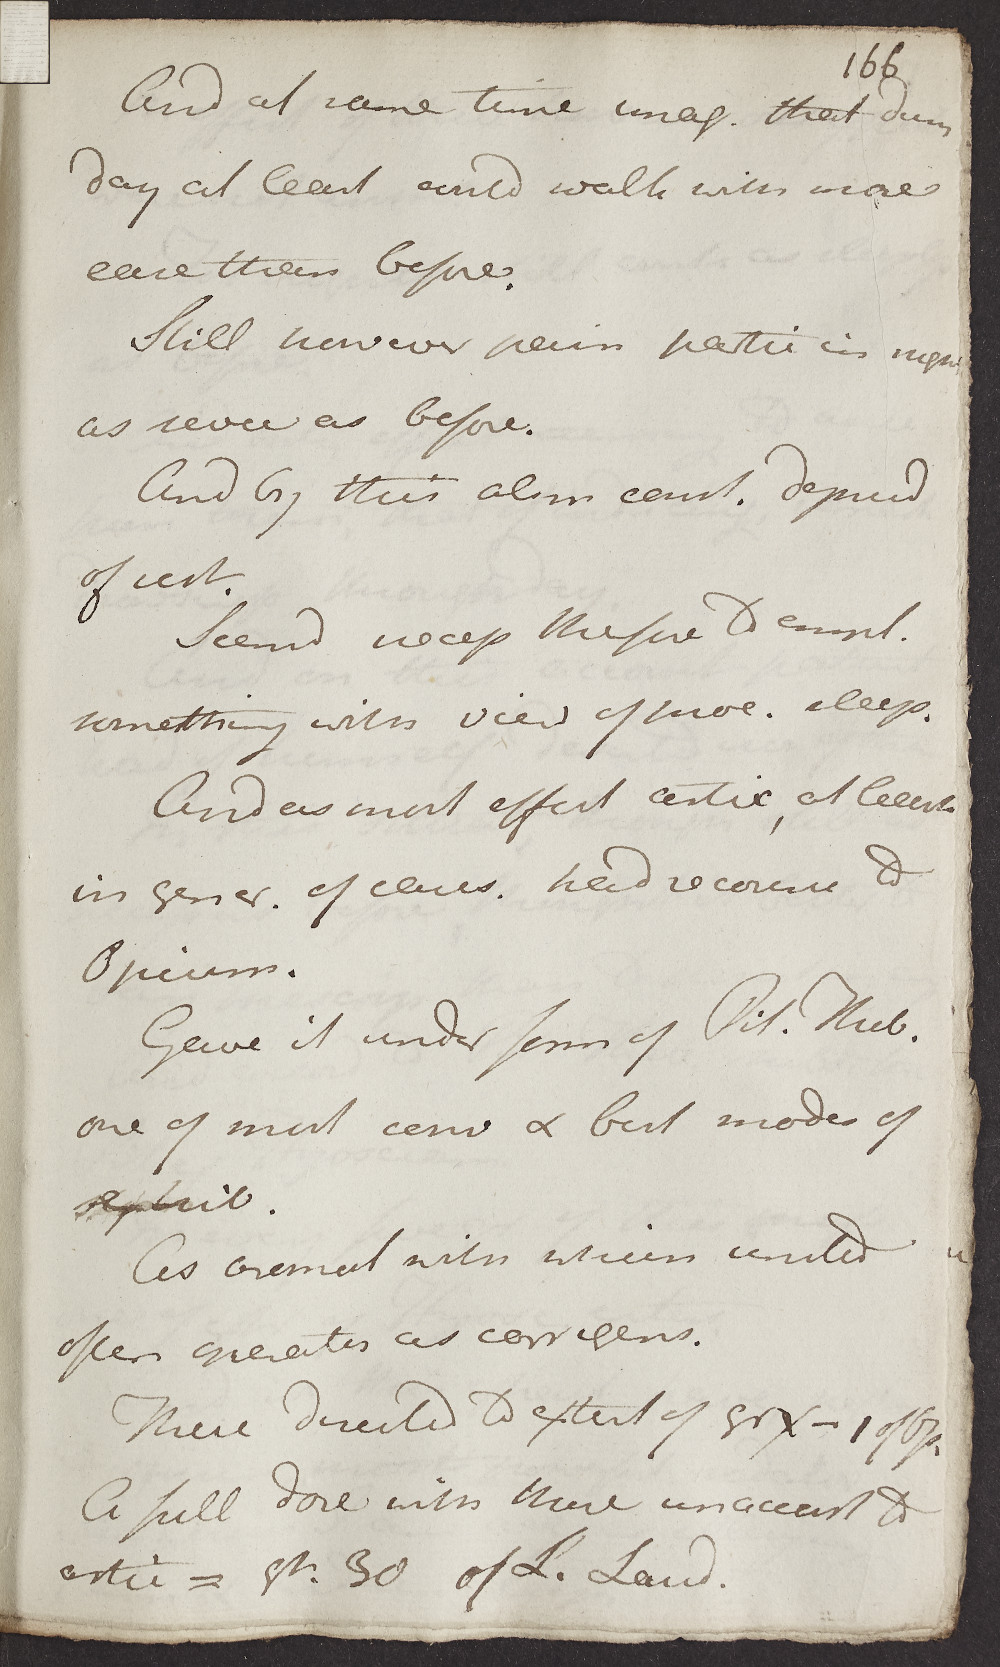 166
And at same time imag. that dur
day at least could walk with more
ease than before.
Still however pain partic in night
as severe as before.
And by this alon const. deprivd
of rest.
Seemd neces therefore to empl.
something with view of proc. sleep.
And as most effect artic, at least
in gener. of cases. had recourse to
Opium.
Gave it under form of Pil. Theb.
one of most conv & best modes of
exhib.
As aromat with which united
often operates as corrigens.
These directed to extent of gr x - 1 of Op.
A full dose with those unaccust to
artic = gt. 30 of L. Laud.